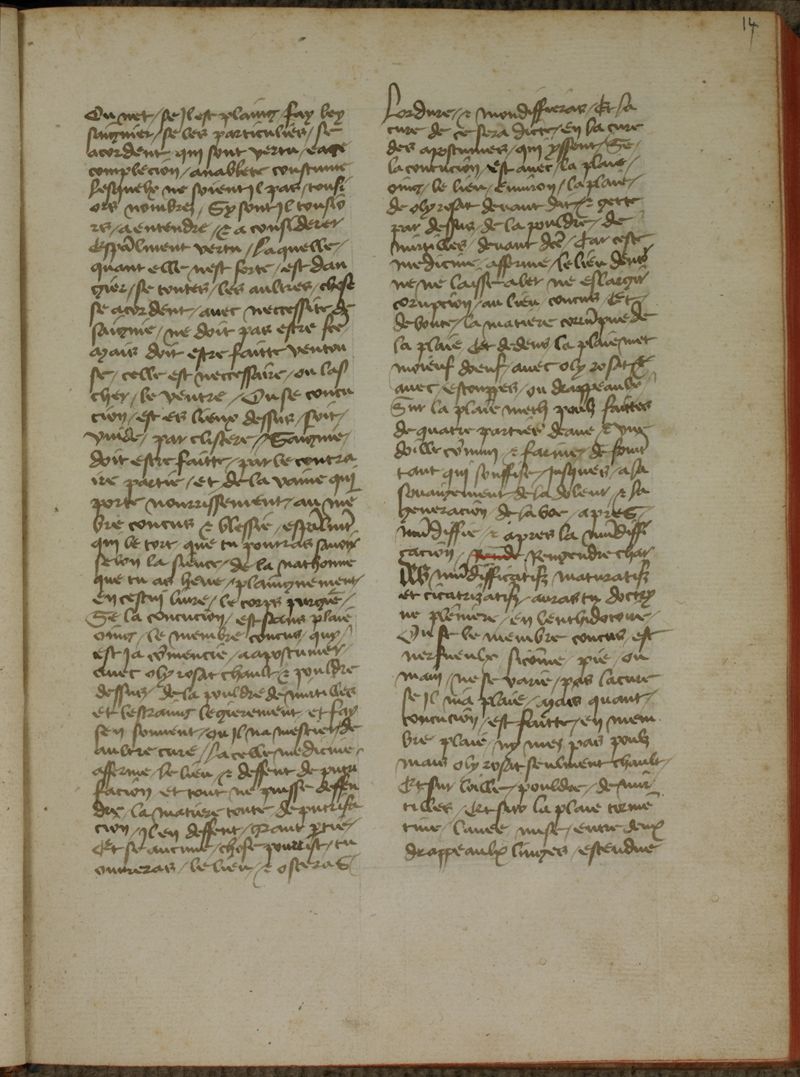 14
Ou net / se il est plaing / fay ley
saignier / se les particuliers / se
acordent / qui sont vertu / eage
complecion / auablete coustume
lesquelx ne soient il pas / tousi
ors nombre / Sy sont il tousio
rs / a entendre / et a considerer
Especialment vertu / laquelle /
quant elle nest forte / est dan
gier / se toutes / les aultres / chose
se acordent / auec neccessite de
saignie / ne doit pas estre fce
mais doit estre faitte ventou
se / celle est neccessaire / ou las
chier / le ventre / Ou se concu
cion / est es lieux dessus / soit /
vuide / par clistere / Saignie /
doit estre faitte / par le contra
ire partie / et de la vaine qui
porte nourrissement / au me
bre concus et blessie / espalmt
qui le tort / que tu pourras sauoir
selon la sience / de la nathomie
que tu as heue / plaingnement /
en cestui liure / le corps purgie /
Se la concucion / est sans plaie
oing / le membre concus / qui /
est ja comencie / a apostumer /
auec oly rosat chault / et pouldre
dessus / de la pouldre de mirtilles
et lestraing legierement / et fay
se n souuent / qu il na mestier de
aultre cure / la celle medicine /
afferme / le lieu / et deffent de putri
facion et tout ne puisse deffen
dre / la matiere toute / de putrifa
cion / il en deffent / grant ptie /
Et se aucune / chose pourrist / tu
ouureras / le lieu / et osteras
Lordure / et mondiffieras / Et la
cure de ce sera dicte / en la cure
des apostumes / qui yssent / Se /
la concucion / est auec / la plaie /
oing / le lieu / enuiron / la plaie /
de oly rosat deuant dit / et gette
par dessus / de la pouldre / de
mirtilles / deuant des / Car ceste
medicine / afferme / le lieu dens
ne ne laisse aler ne eslargir
corupcion / au lieu concus / Et /
deboute / la matiere corumpue de
la plaie Et dedens la plaie met
moieuf doeuf / auec oly rosat et
auec / estouppes / ou drappeaulx
Sur la plaie meth poulz faittes
de quatre parties deaue / et vng
doille comun / et farine / de fromt
tant qui souffise / jusques / a la
souaigement / de la doleur / et la
generacion / de la boe / apres /
mundiffie / et apres la mundiffi
cacion / Rengendre char
les mundifficatifz maturatifz
et cicatrizatifz / auras tu doctry
ne pleniere / en lenthidotoire /
Ou se le membre concus / est
nerfueulx / sicome / pie / ou
main / ne se varie / pas la cure
se il na plaie / Mais quant /
concucion / est faitte / en mem
bre plaie / ny mes pas poulz
mais oly rosat seulment chault /
Et sur loille / pouldre / de mir
tilles / Et sur la plaie torme
tine / lauee / mise / entre deux
drappeaulx linges / estendue